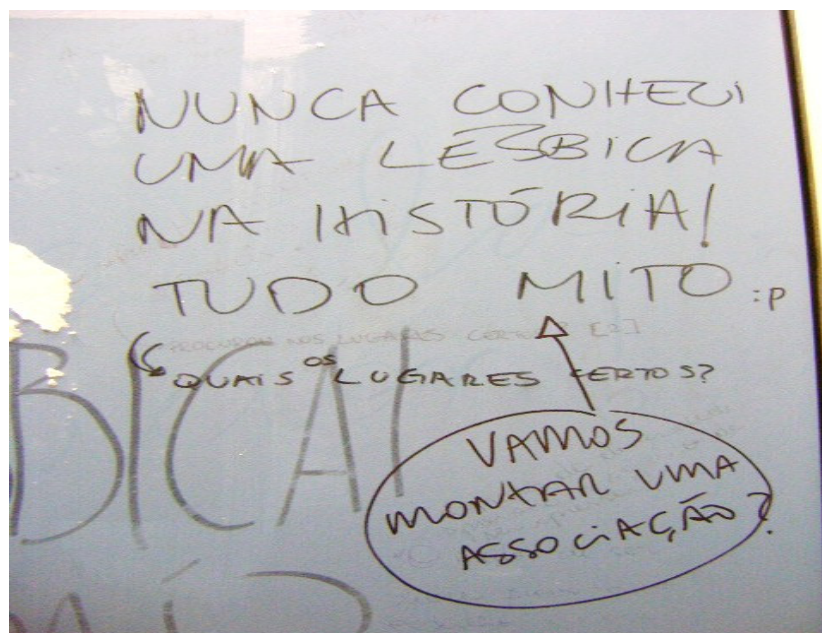 NUNCA CONHECI
UMA LÉSBICA
NA HISTÓRIA!
TUDO MITO :P
PROCUROU NOS LUGARES CERTOS? [2]
QUAIS OS LUGARES CERTOS?
BICA!
VAMOS
MONTAR UMA
ASSOCIAÇÃO?